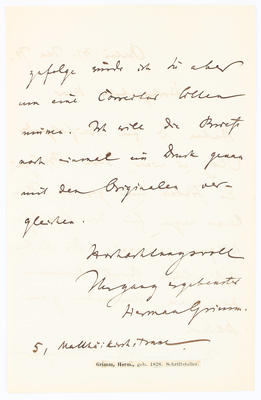 gefolge würde ich Sie aber
um eine Correctur bitten
müssen. Ich will die Briefe
noch einmal im Druck genau
mit den Originalen ver-
gleichen.
Hochachtungsvoll
ergebenster
Herman Grimm.
5, Matthäikirchstrasse
Grimm, Herm., geb. 1828. Schriftsteller.